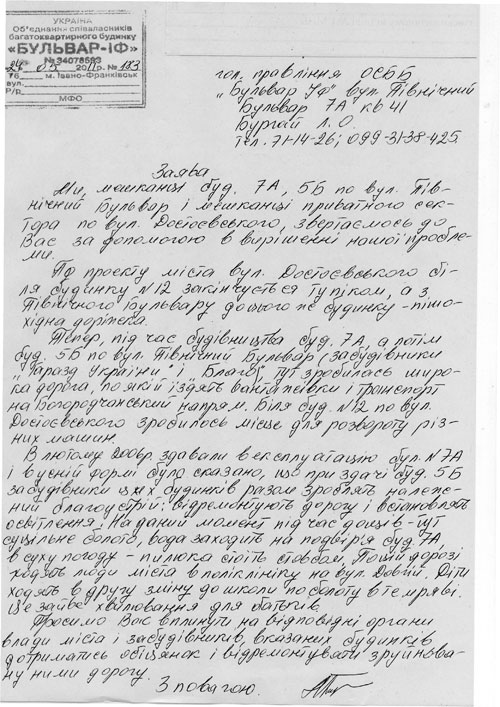 УКРАЇНА
Об'єднання співвласників
багатоквартирного будинку
«БУЛЬВАР-ІФ»
№34078593
20 р. № 183
76 м. Івано-Франківськ
вул.
Р/р
МФО
гол. правління ОСББ
„Бульвар ІФ" вул. Північний
Бульвар 7А кв 41
Бургай Л. О.
тел. 71-14-26; 099-3138-425.
Заява
Ми, мешканці буд. 7А, 5Б по вул. Пів-
нічний Бульвар і мешканці приватного сек-
тора по вул. Достоєвського, звертаємось до
Вас за допомогою в вирішенні нашої пробле-
ми.
По проекту міста вул. Достоєвського бі-
ля будинку N12 закінчується тупіком, а з
Північного Бульвару до цього ж будинку - пішо-
хідна доріжка.
Тепер, під час будівництва буд. 7А, а потім
буд. 5Б по вул. Північний Бульвар, забудівники
„Гаразд України" і „Благо", тут зробилась широ-
ка дорога, по якій їздять вантажівки і транспорт
на Богородчанський напрям. Біля буд. N12 по вул.
Достоєвського зробилось місце для розвороту різ-
них машин.
В лютому 200 р. здавали в експлуатацію буд. N7А
і в усній формі було сказано, що при здачі буд. 5Б
забудівники цих будинків разом зроблять належ-
ний благоустрій: відремонтують дорогу і встановлять
освітлення. На даний момент під час дощів - тут
суцільне болото, вода заходить на подвір'я буд. 7А
в суху погоду - пилюка стоїть стовбом. По цій дорозі
ходять люди міста в поліклініку на вул. Довгій. Діти
ходять в другу зміну до школи по болоту в темряві.
Це зайве хвилювання для батьків.
Просимо Вас вплинути на відповідні органи
влади міста і забудівників, вказаних будинків
дотриматись обіцянок і відремонтувати зруйнова-
ну ними дорогу.
З повагою.